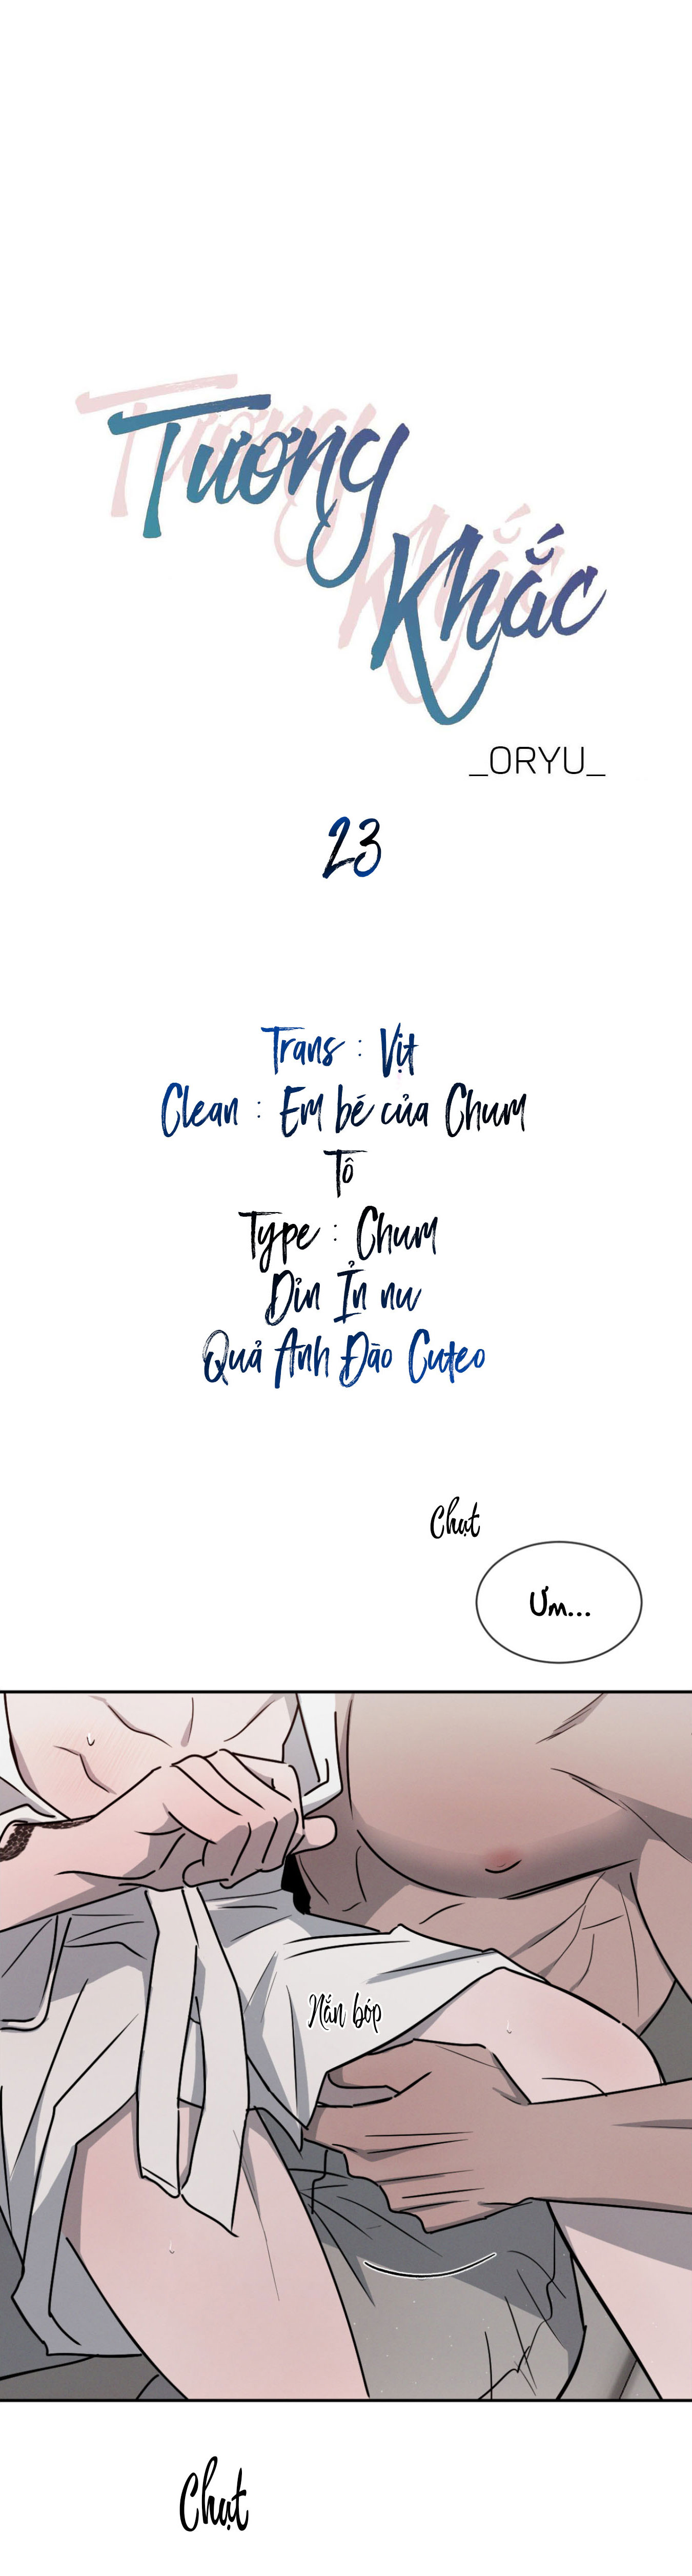 Tương
Khắc
_ORYU_
23
Trans : Vịt
Clean : Em bé của Chum
Tô
Type : Chum
Dỉn Ỉn nu
Quả Anh Đào Cuteo
Chụt
Ưm...
Nắn bóp
Chụt